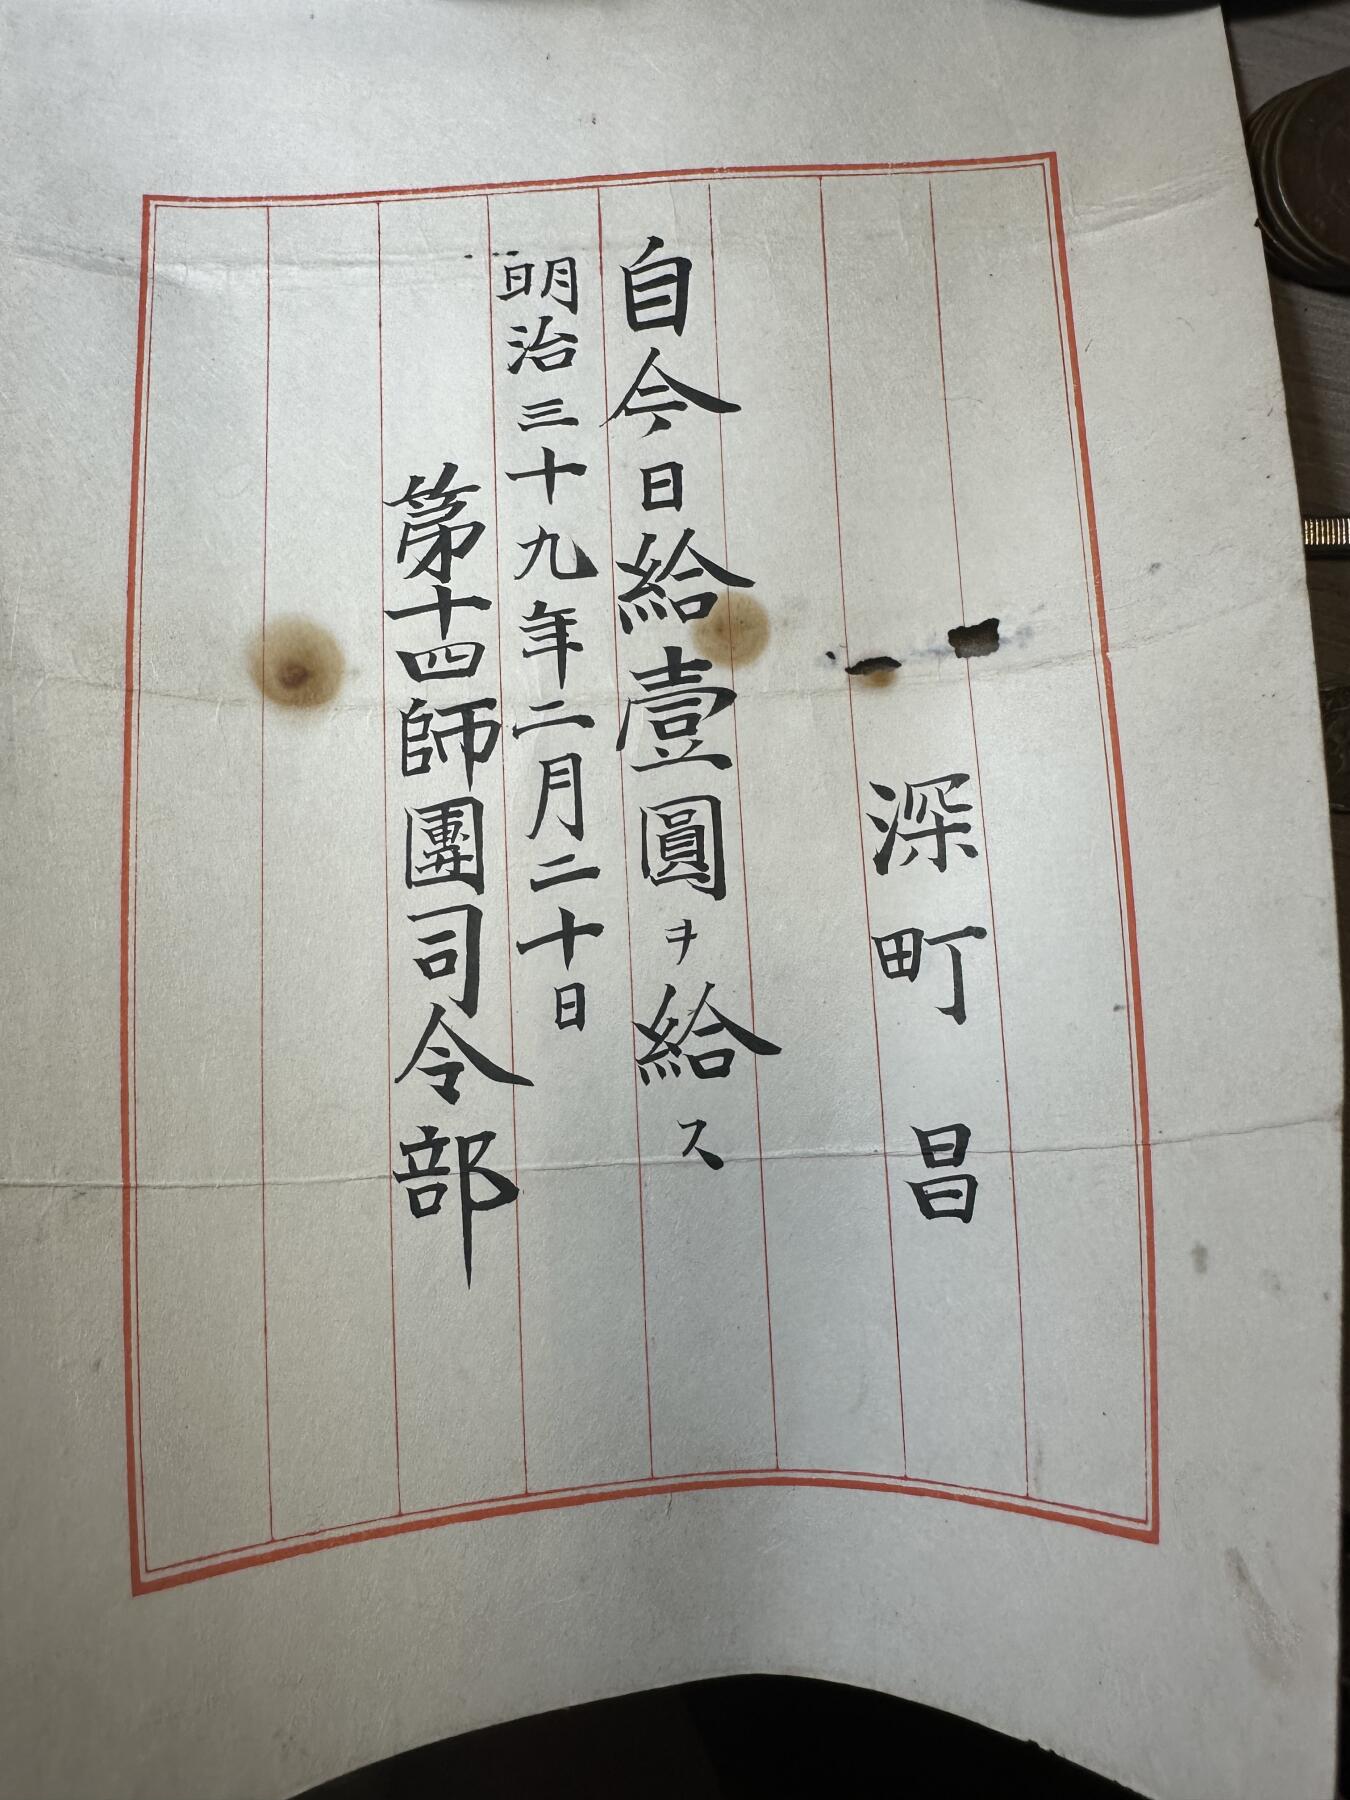 深町昌
自今日給壹圓ヲ給ス
明治三十九年二月二十日
第十四師團司令部